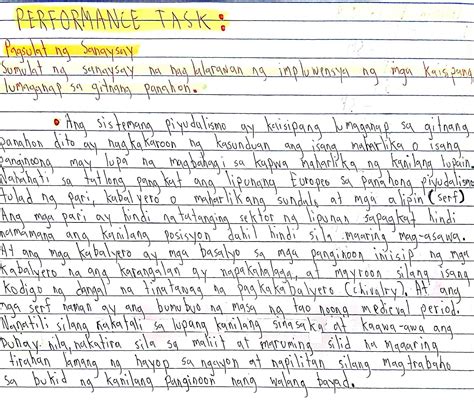 PERFORMANCE TASK:
Pagsulat ng Sanaysay
Sumulat ng sanaysay na naglalarawan ng impluwensya ng mga kaisipang
lumaganap sa gitnang panahon.
• Ang sistemang piyudalismo ay kaisipang lumaganap sa gitnang
panahon dito ay nagkakaroon ng kasunduan ang isang maharlika o isang
panginoong may lupa na magbahagi sa kapwa maharlika ng kanilang lupain.
Nahahati sa tatlong pangkat ang lipunang Europeo sa panahong piyudalismo
tulad ng pari, kabalyero o maharlikang sundalo, at mga alipin (serf)
Ang mga pari ay hindi natatanging sektor ng lipunan sapagkat hindi
namamana ang kanilang posisyon dahil hindi sila maaring mag-asawa.
At ang mga kabalyero ay mga basalyo sa mga panginoon iniisip ng mga
kabalyero na ang karangalan ay napakahalaga, at mayroon silang isang
kodigo ng dangal na tinatawag na pagkakabalyero (chivalry). At ang
mga serf naman ay ang bumubuo ng masa ng tao noong medieval period.
Napatili silang nakatali sa lupang kanilang sinasaka at kaawa-awa ang
buhay nila, nakatira sila sa maliit at maruming silid na maaaring
tirahan lamang ng hayop sa ngayon at napilitan silang magtrabaho
sa bukid ng kanilang panginoon nang walang bayad.